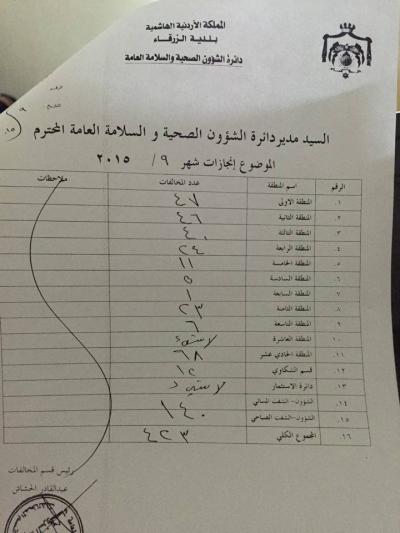 المملكة الأردنية الهاشمية
بلدية الزرقاء
دائرة الشؤون الصحية والسلامة العامة
السيد مدير دائرة الشؤون الصحية و السلامة العامة المحترم
الموضوع إنجازات شهر ٩/ ٢٠١٥
الرقم اسم المنطقة عدد المخالفات ملاحظات
١. المنطقة الاولى ٤٧
٢. المنطقة الثانية ٤٦
٣. المنطقة الثالثة ٤٠
٤. المنطقة الرابعة ٢٤
٥. المنطقة الخامسة ١١
٦. المنطقة السادسة ٥
٧. المنطقة السابعة ١
٨. المنطقة الثامنة ٢٣
٩. المنطقة التاسعة ٦
١٠. المنطقة العاشرة لا شيء
١١. المنطقة الحادي عشر ٦٨
١٢. قسم الشكاوي ١٢
١٣. دائرة الاستثمار لا شيء
١٤. الشؤون-الشفت المسائي ١٤٠
١٥. الشؤون-الشفت الصباحي
١٦. المجموع الكلي ٤٢٣
رئيس قسم المخالفات
عبدالقادر الحشاش